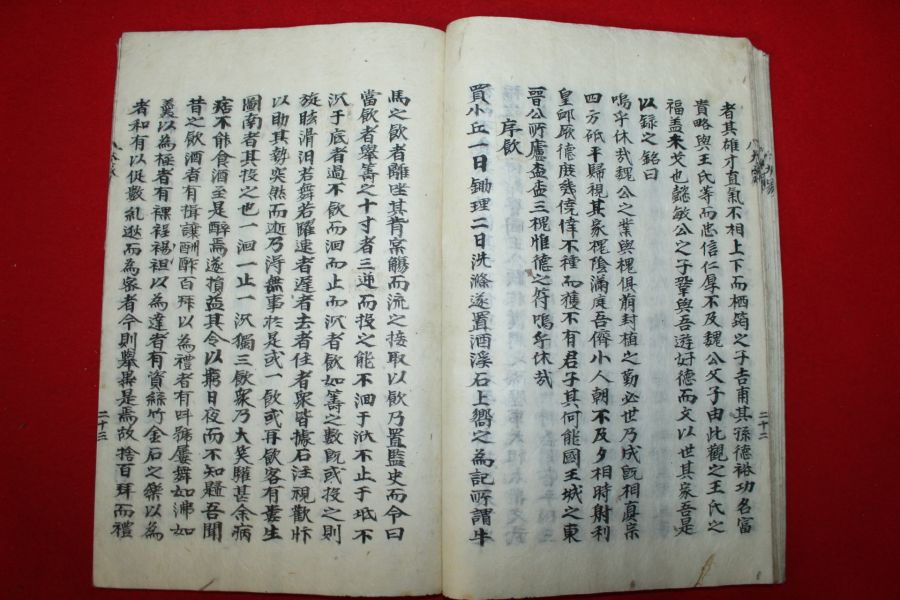 者其雄才直氣不相上下而栖筠之子吉甫其孫德裕功名富
貴略與王氏等而忠信仁厚不及魏公父子由此觀之王氏之
福盖未艾也懿敏公之子鞏與吾遊好德而文以世其家吾是
以錄之銘曰
嗚乎休哉魏公之業與槐俱萠封植之勤必世乃成旣相眞宗
四方砥平歸視其家槐陰滿庭吾儕小人朝不及夕相時射利
皇卹厥德庶幾僥倖不種而獲不有君子其何能國王城之東
晉公所廬盍盍三槐惟德之符嗚乎休哉
序飮
買小丘一日鋤理二日洗滌遂置酒溪石上嚮之為記所謂牛
二十二
馬之飮者離坐其背實觴而流之接取以飮乃置監史而令曰
當飮者擧籌之十寸者三逆而投之能不洄于洑不止于坻不
沉于底者過不飮而洄而止而沉者飮如籌之數旣或投之則
旋眩滑汨若舞若躍速者遲者去者住者衆皆據石注視歡忭
以助其勢突然而逝乃淂無事於是或一飮或再飮客有婁生
圖南者其投之也一洄一止一沉獨三飮衆乃大笑驩甚余病
痞不能食酒至是醉焉遂損益其令以窮日夜而不知歸吾聞
昔之飮酒者有揖讓酬酢百拜以為禮者有呌號屢舞如沸如
羹以為極者有裸裎裼袒以為達者有資絲竹金石之樂以為
者和有以促數糺逖而為密者今則擧異是焉故捨百拜而禮
二十三